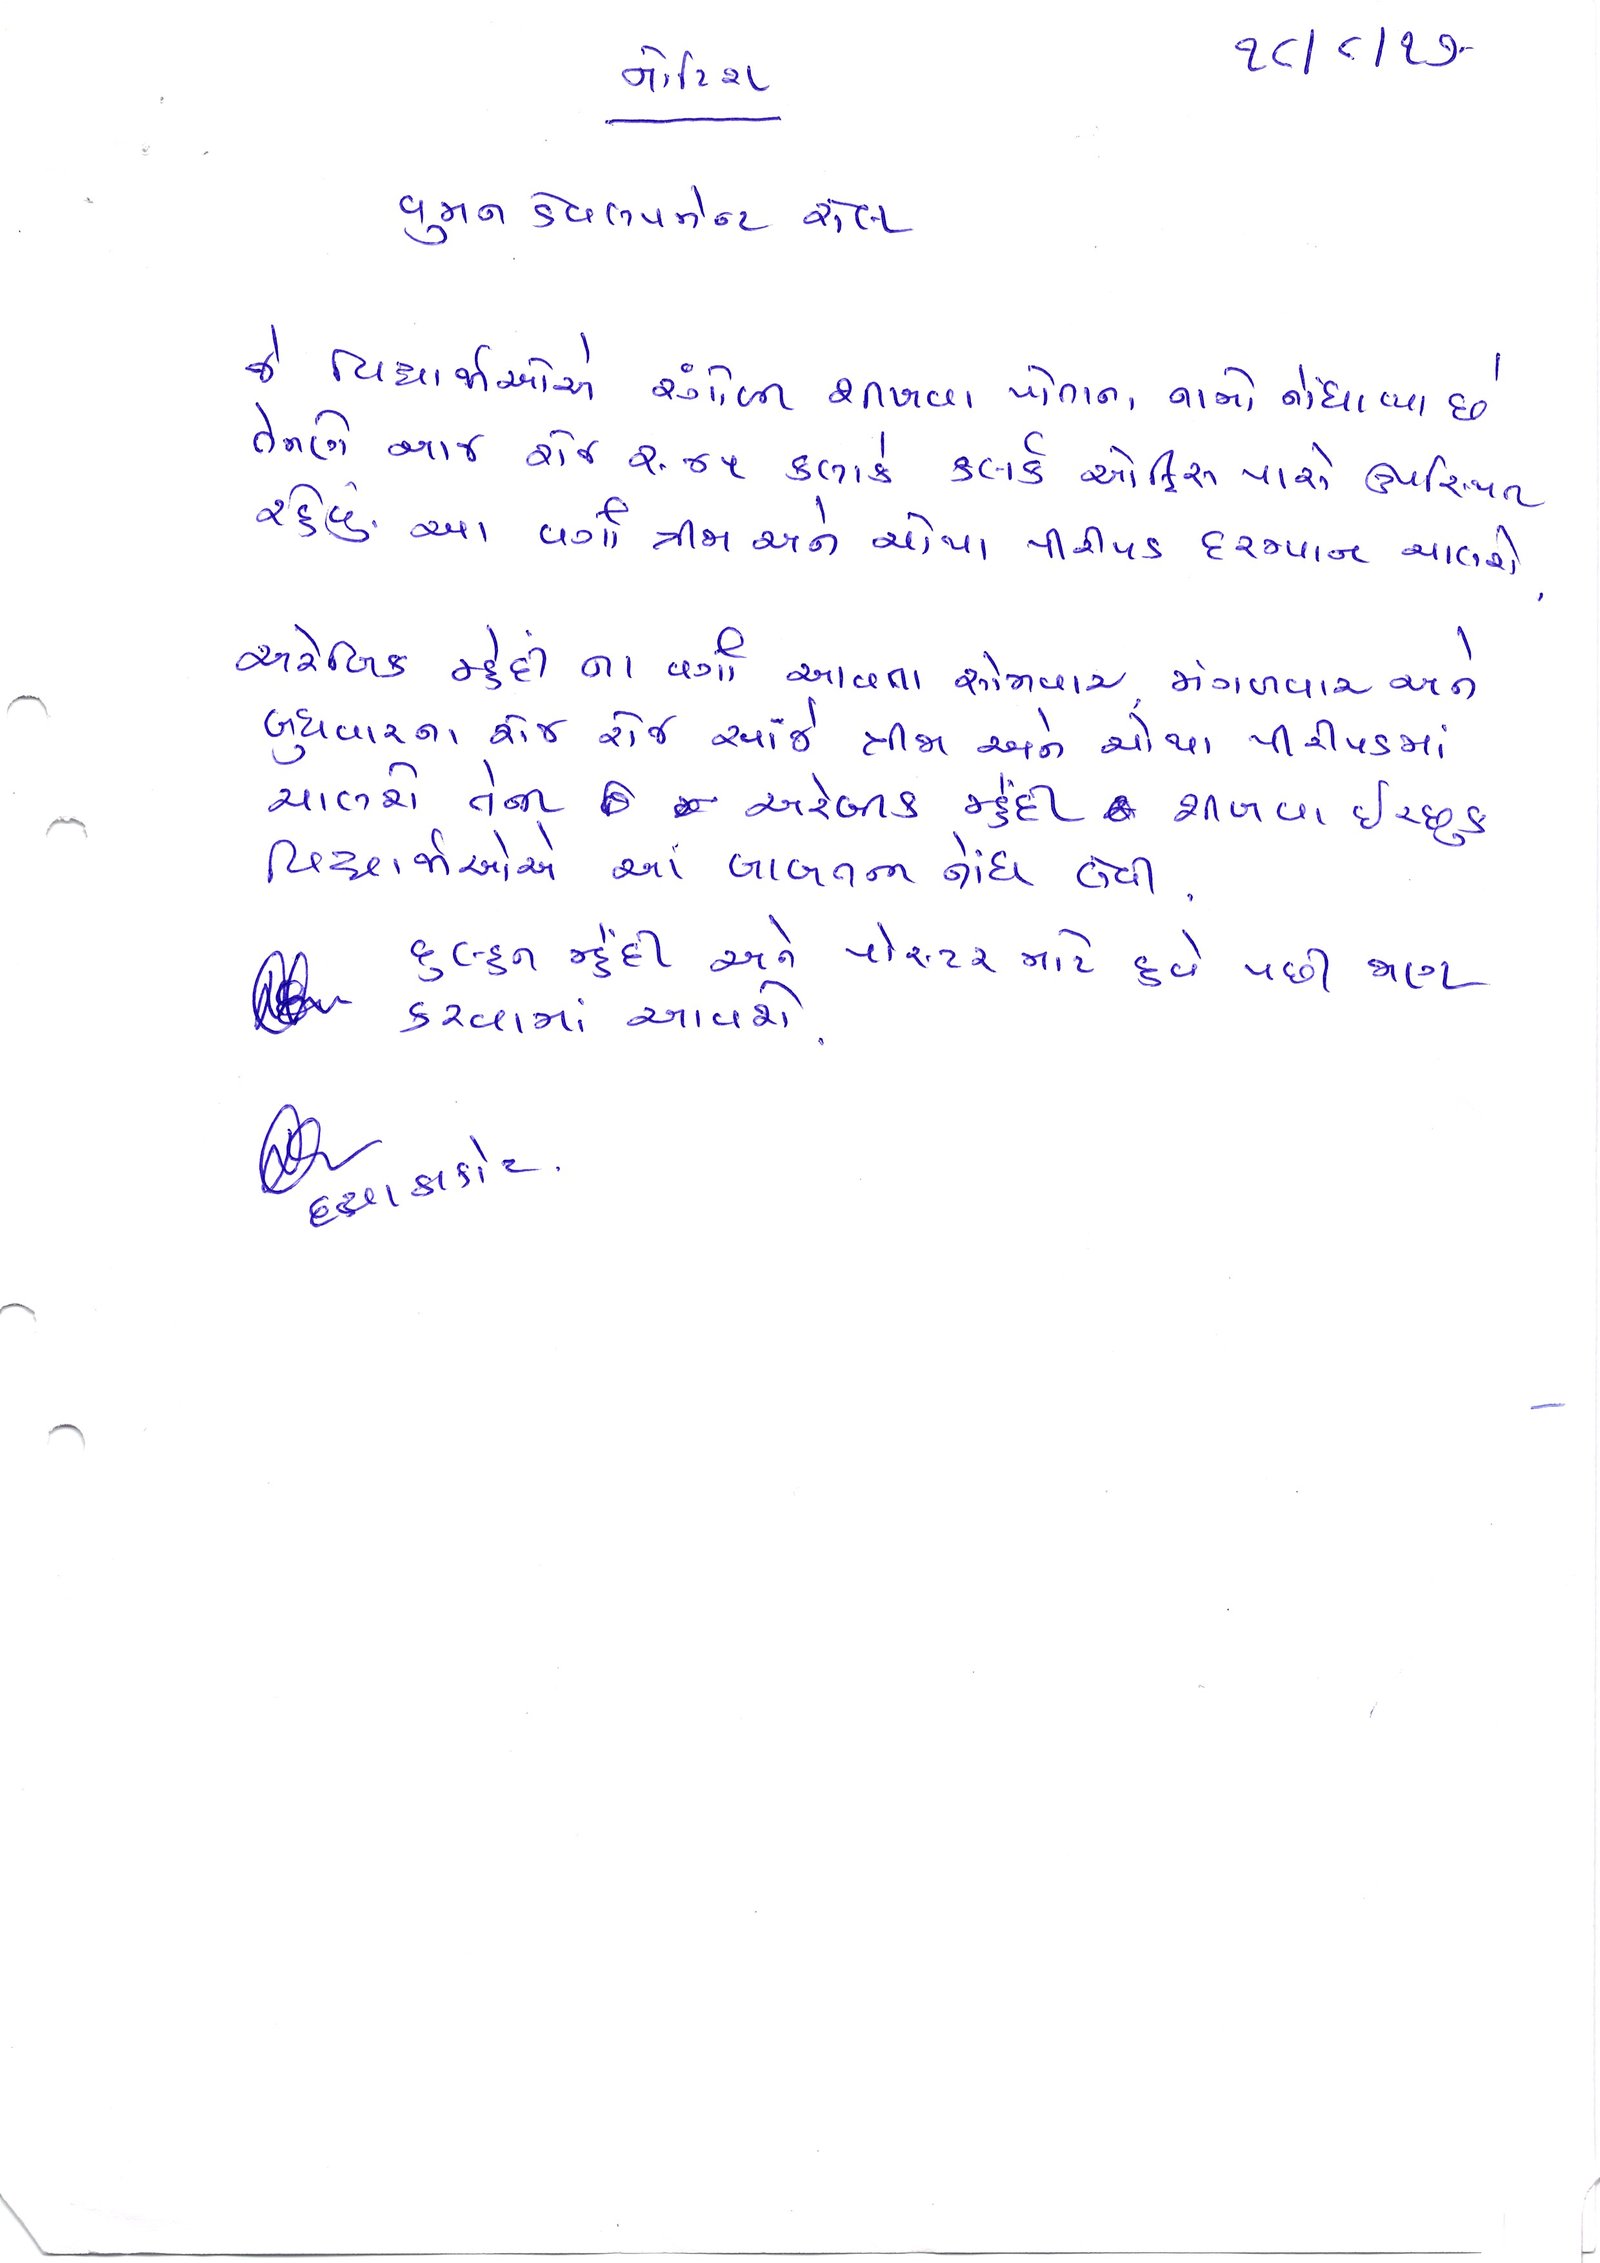 ૧૮/૮/૧૭
નોટિશ
વુમન ડેવલપમેન્ટ સેલ
જે વિદ્યાર્થીઓએ રંગોળી શીખવા પોતાના નામો નોંધાવ્યા છે
તેમણે આજ રોજ ૨.૪૫ કલાકે કલાર્ક ઓફિસ પાસે ઉપસ્થિત
રહેવું. આ વર્ગો ત્રીજા અને ચોથા પીરીયડ દરમ્યાન ચાલશે.
અરેબિક મ્હેંદી ના વર્ગો આવતા સોમવાર, મંગળવાર અને
બુધવારના રોજ રોજ સાંજે ત્રીજા અને ચોથા પીરીયડમાં
ચાલશે તેની અરેબીક મ્હેંદી શીખવા ઈચ્છુક
વિદ્યાર્થીઓએ આ બાબતની નોંધ લેવી.
દુલ્હન મ્હેંદી અને પોસ્ટર માટે હવે પછી જાણ
કરવામાં આવશે.